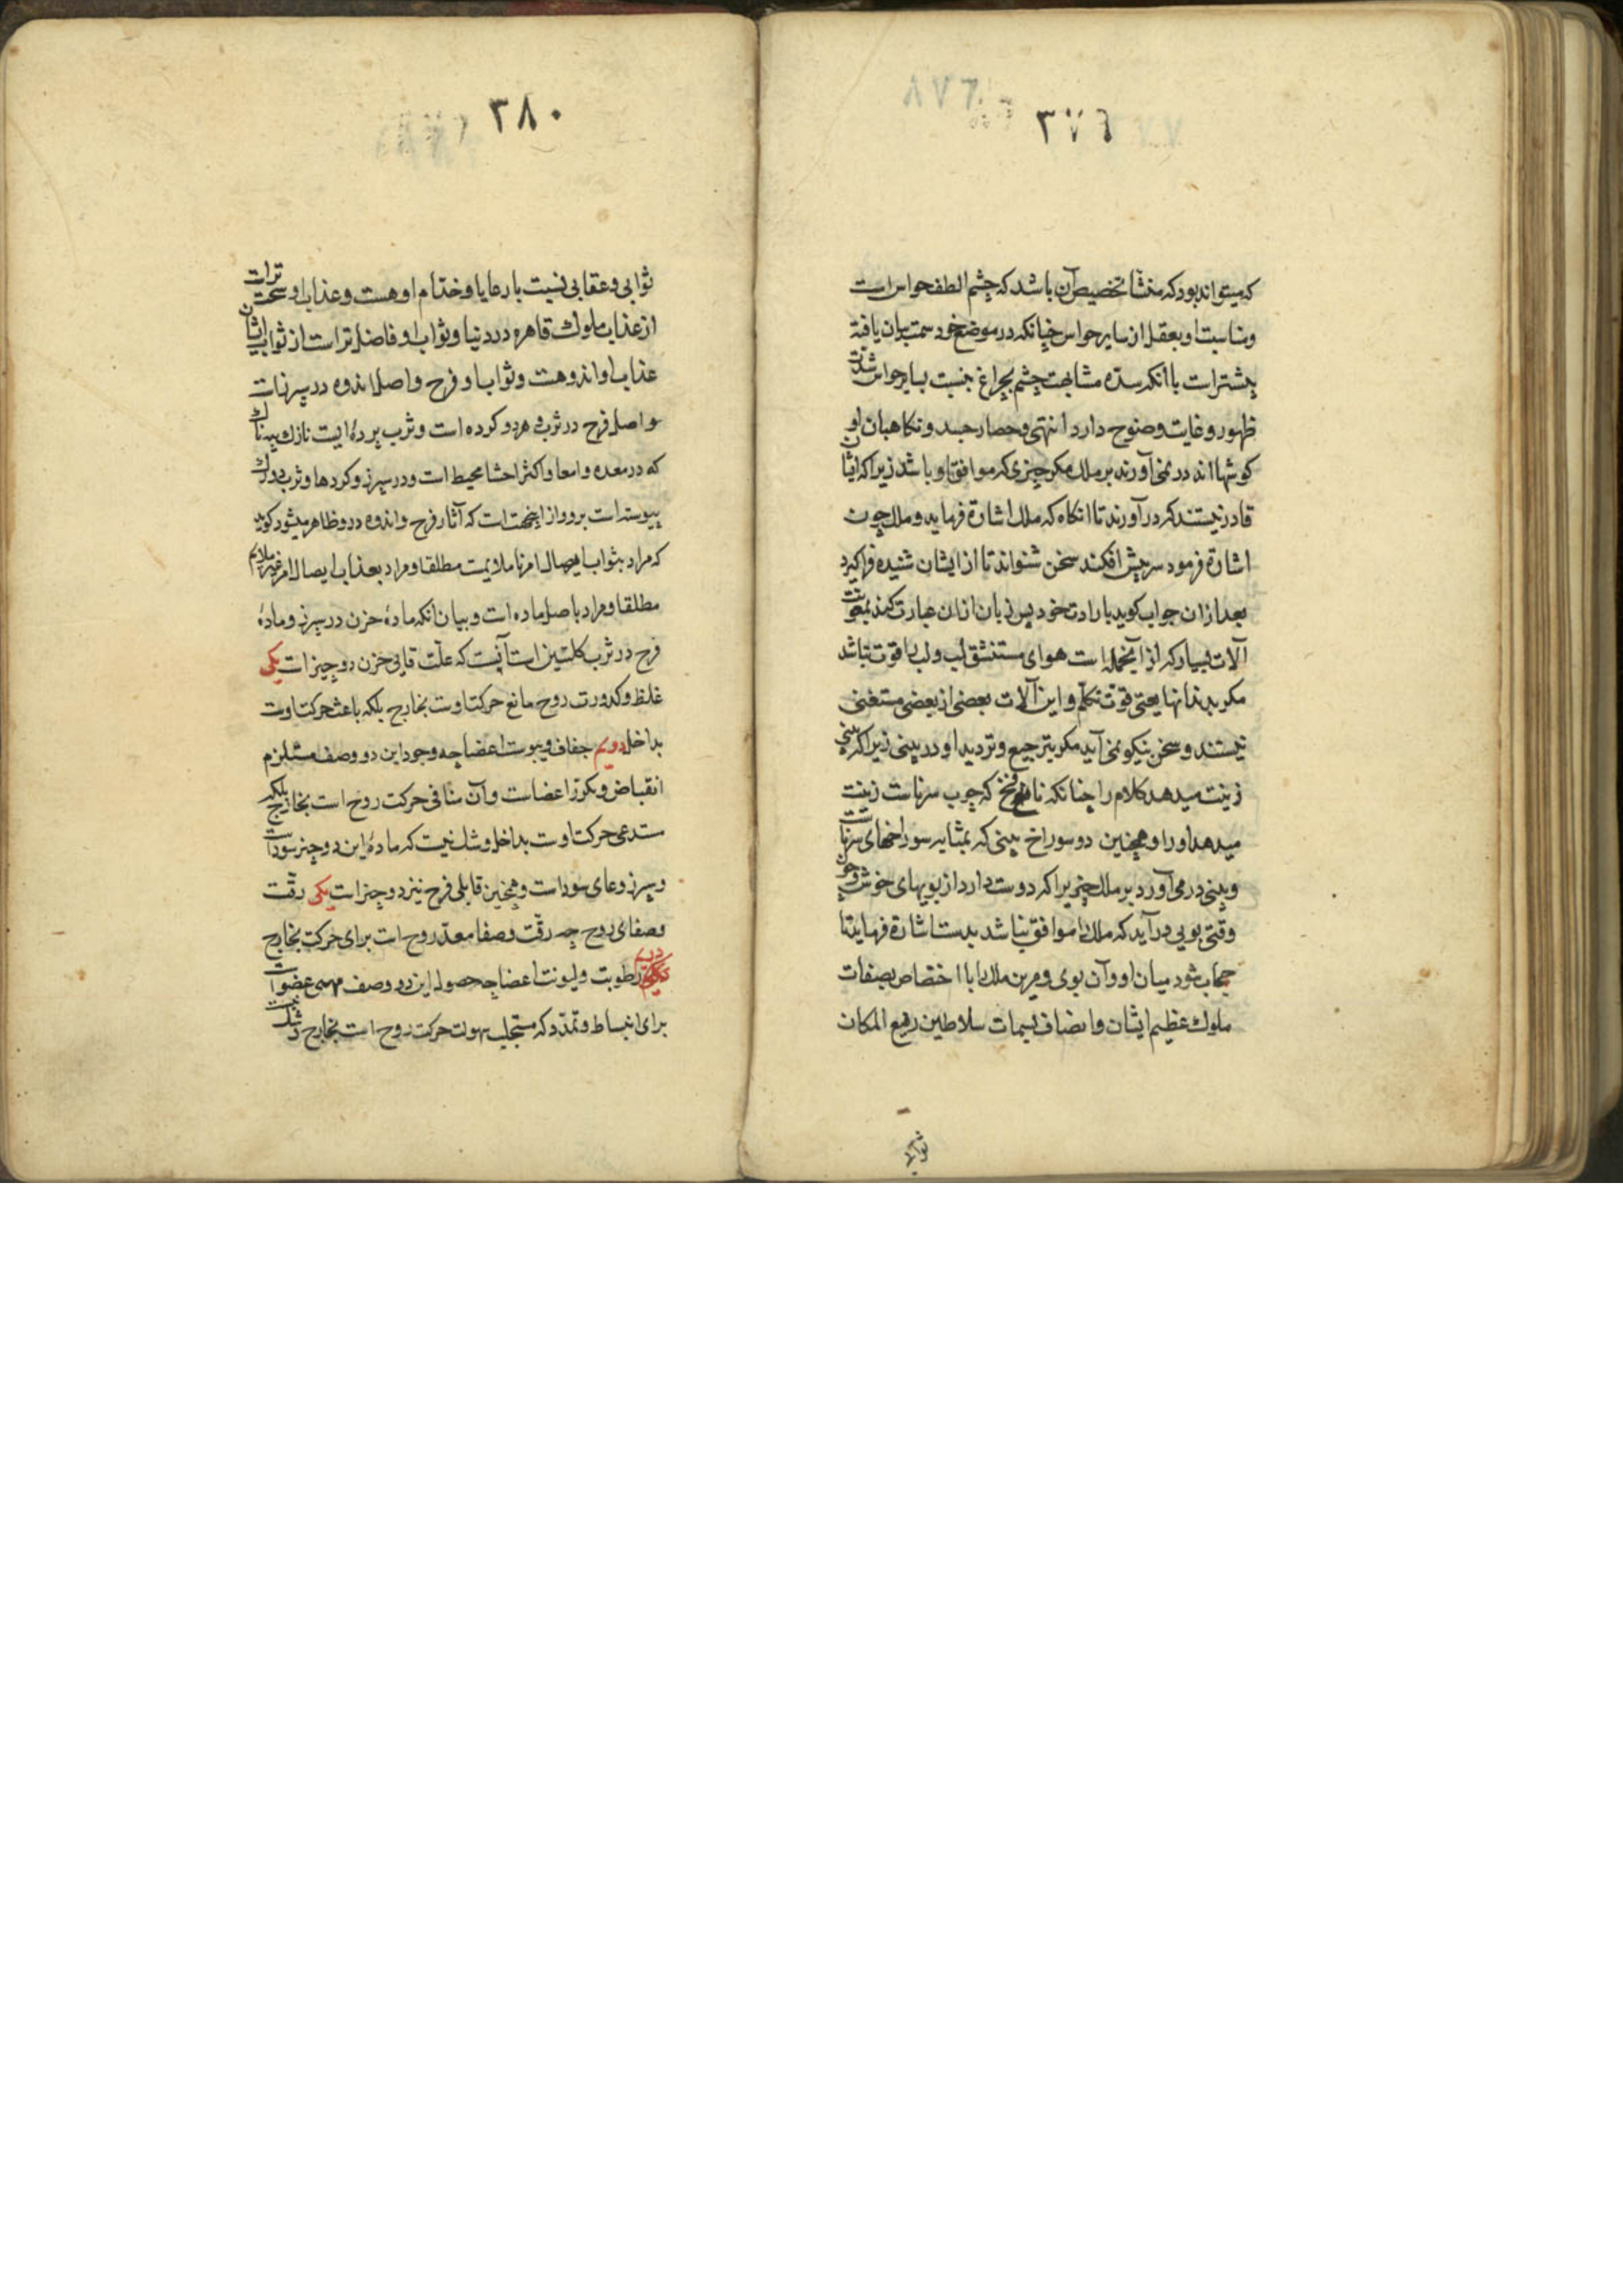 ٣٧٩
که میتواند بود که منشأ تخصیص آن باشد که چشم الطف حواس است
و مناسبت او بعقل از سایر حواس چنانکه در موضع خود سمت بیان یافته
بیشتر است با آنکه مشابهت چشم بچراغ بنسبت بسایر حواس شدت
ظهور و غایت وضوح دارد انتهی و حصار جسد و نکاهبان او
کوشها اند در نمی آورند بر ملک مکر چیزی که موافق او باشد زیرا که ایشان
قادر نیستند که در آورند تا انکاه که ملک اشارة فرماید و ملک چون
اشارة فرمود سر پیش افکند سخن شنواند تا از ایشان شنیده فراکیرد
بعد از ان جواب کوید بارادت خود پس زبان ازان عبارت کند بمعونت
آلات بسیار که از آنجمله است هوای مستنشق لب و لب را قوت نباشد
مکر بدندانها یعنی قوت تکلم و این آلات بعضی از بعضی مستغنی
نیستند و سخن نیکو نمی آید مکر بترجیع و تردید او در بینی زیرا که بینی
زینت میدهد کلام را چنانکه نافخ که چوب سرناست زینت
میدهد او را و همچنین دو سوراخ بینی که بمثابه سوراخهای سرناست
و بینی در می آورد بر ملک چیزیرا که دوست دارد از بویهای خوش و چون
وقتی بویی در آید که ملک را موافق نباشد بدست اشارة فرماید تا
حجاب شود میان او و آن بوی و مرین ملک را با اختصاص بصفات
ملوک عظیم ایشان و اتصاف بسمات سلاطین رفیع المکان
ثوابی
٣٨٠
ثوابی و عقابی نسبت با رعایا و خدام او هست و عذاب او سخت تراست
از عذاب ملوک قاهره در دنیا و ثواب او فاضل تراست از ثواب ایشان
عذاب او اندوهست و ثواب او فرح و اصل اندوه در سپرزاست
و اصل فرح در ثرب و هر دو کرده است و ثرب پردهٔ ایست نازک پیه ناک
که در معده و امعا و اکثر احشا محیط است و در سپرز و کردها و ثرب دو رک
پیوسته است برو و از اینجهت است که آثار فرح و اندوه در رو ظاهر میشود کوید
که مراد بثواب ایصال امر ملایمت مطلقا و مراد بعذاب ایصال امر غیر ملایم
مطلقا و مراد باصل ماده است و بیان انکه مادهٔ حزن در سپرز و مادهٔ
فرح در ثرب کلیتین است آنست که علّت قابلی حزن دو چیز است یکی
غلظ و کدورت روح مانع حرکت اوست بخارج بلکه باعث حرکت اوست
بداخل دویم جفاف و یبوست اعضا چه وجود این دو وصف مستلزم
انقباض و تکرز اعضاست و آن منافی حرکت روح است بخارج بلکه
مستدعی حرکت اوست بداخل و شک نیست که مادهٔ این دو چیز سوداست
و سپرز وعای سوداست و همچنین قابلی فرح نیز دو چیز است یکی رقّت
و صفای روح چه رقّت و صفا معدّ روح است برای حرکت بخارج
دویم رطوبت و لیونت اعضا چه حصول این دو وصف مهیی عضو است
برای انبساط و تمدّد که مستجلب سهولت حرکت روح است بخارج و شک نیست